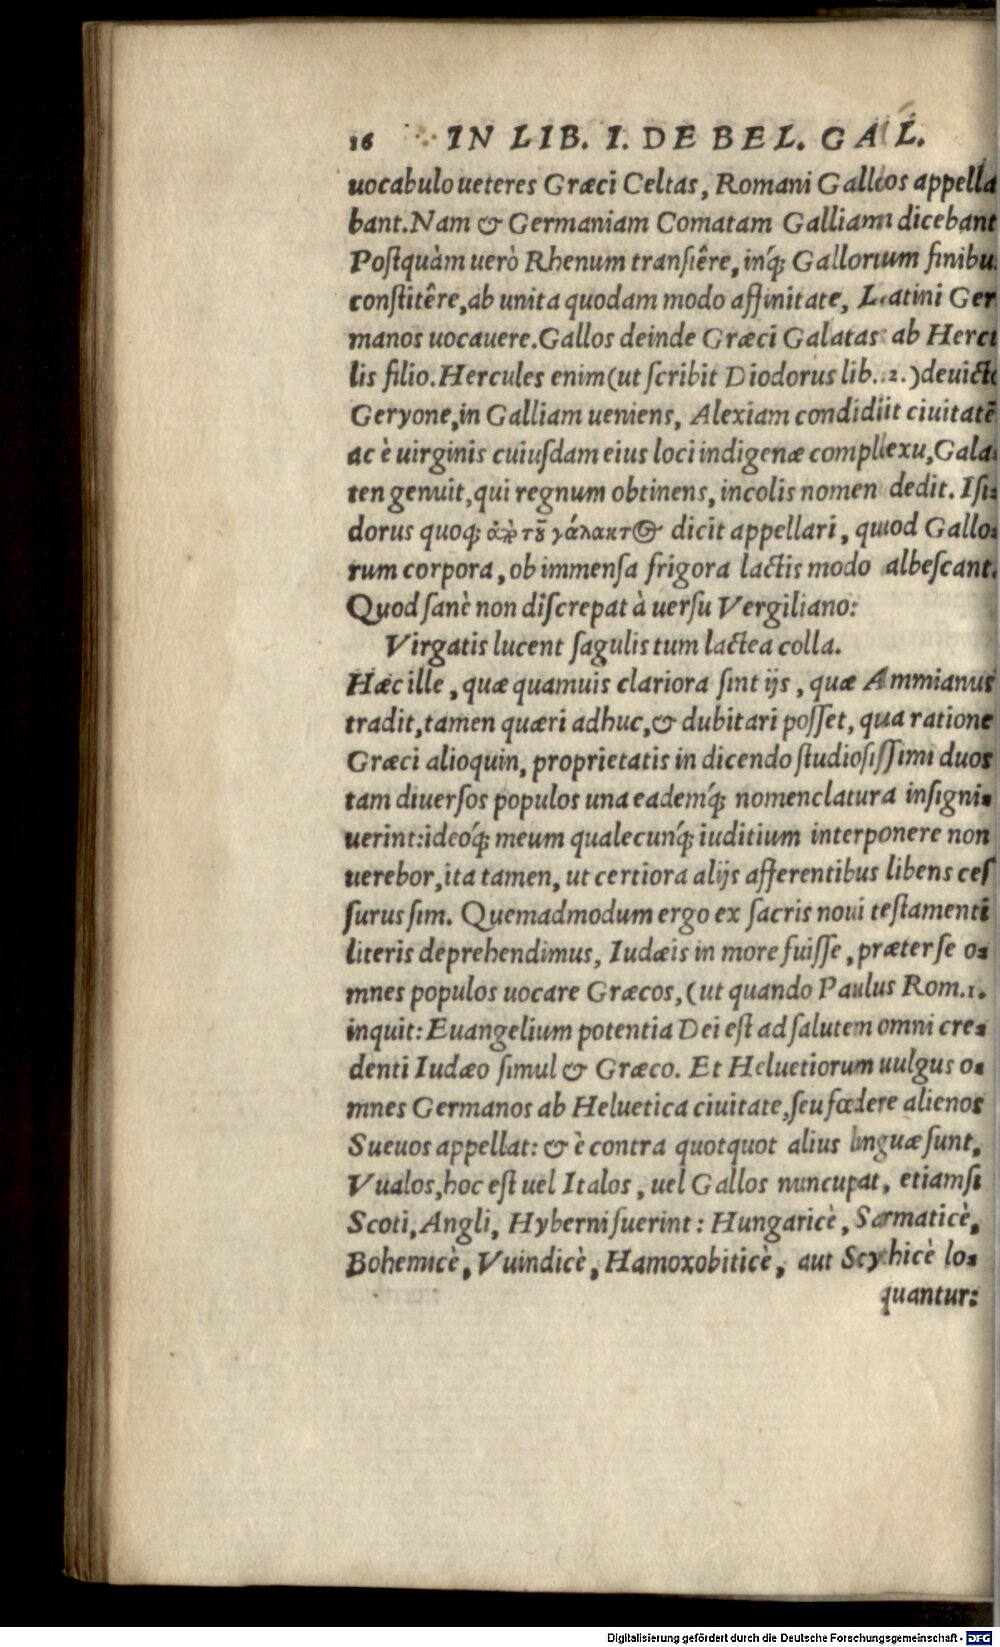 16 IN LIB. I. DE BEL. GAL.
uocabulo ueteres Græci Celtas, Romani Gallos appella
bant. Nam & Germaniam Comatam Galliam dicebant
Postquàm uerò Rhenum transiêre, inq́; Gallorum finibu
constitêre, ab unita quodam modo affinitate, Latini Ger
manos uocauere. Gallos deinde Græci Galatas ab Hercu
lis filio. Hercules enim (ut scribit Diodorus lib. 2.) deuicto
Geryone, in Galliam ueniens, Alexiam condidit ciuitatē
ac è uirginis cuiusdam eius loci indigenæ complexu, Gala⸗
ten genuit, qui regnum obtinens, incolis nomen dedit. Isi⸗
dorus quoq; ἀπὸ τοῦ γάλακτος dicit appellari, quod Gallo⸗
rum corpora, ob immensa frigora lactis modo albescant.
Quod sanè non discrepat à uersu Vergiliano:
Virgatis lucent sagulis tum lactea colla.
Hæc ille, quæ quamuis clariora sint ijs, quæ Ammianus
tradit, tamen quæri adhuc, & dubitari posset, qua ratione
Græci alioquin, proprietatis in dicendo studiosissimi duos
tam diuersos populos una eademq́; nomenclatura insigni⸗
uerint: ideoq́; meum qualecunq́; iuditium interponere non
uerebor, ita tamen, ut certiora alijs afferentibus libens ces
surus sim. Quemadmodum ergo ex sacris noui testamenti
literis deprehendimus, Iudæis in more fuisse, præter se o⸗
mnes populos uocare Græcos, (ut quando Paulus Rom. 1.
inquit: Euangelium potentia Dei est ad salutem omni cre⸗
denti Iudæo simul & Græco. Et Heluetiorum uulgus o⸗
mnes Germanos ab Heluetica ciuitate, seu fœdere alienos
Sueuos appellat: & è contra quotquot alius linguæ sunt,
Vualos, hoc est uel Italos, uel Gallos nuncupat, etiamsi
Scoti, Angli, Hyberni fuerint: Hungaricè, Sarmaticè,
Bohemicè, Vuindicè, Hamoxobiticè, aut Scythicè lo⸗
quantur:
Digitalisierung gefördert durch die Deutsche Forschungsgemeinschaft - DFG